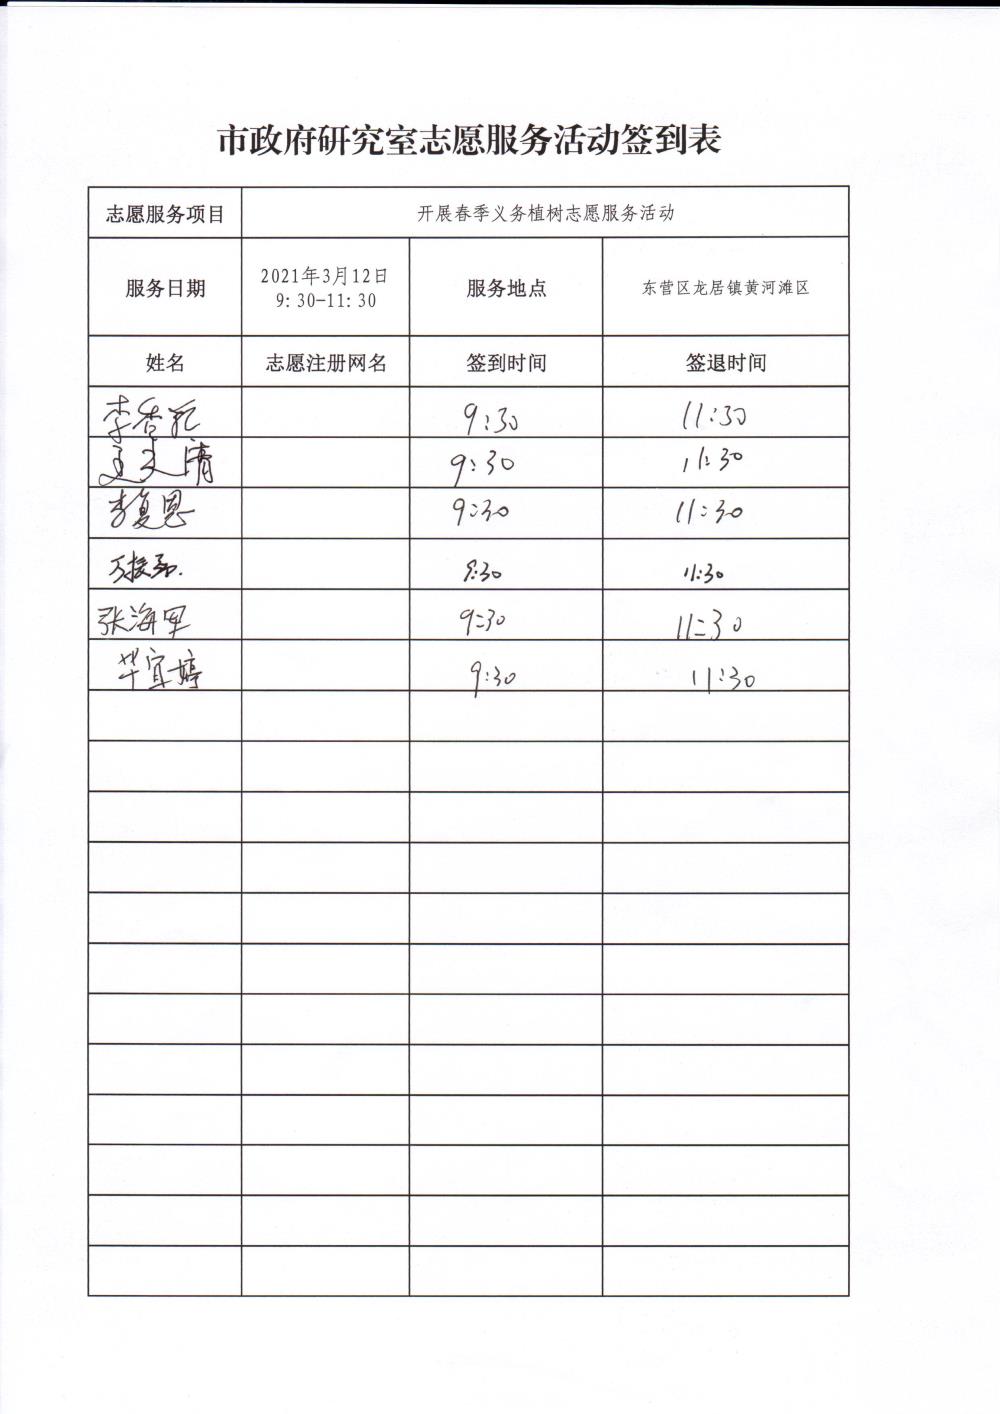 市政府研究室志愿服务活动签到表
志愿服务项目 开展春季义务植树志愿服务活动
服务日期 2021年3月12日 9:30-11:30 服务地点 东营区龙居镇黄河滩区
姓名 志愿注册网名 签到时间 签退时间
9:30 11:30
9:30 11:30
李复恩 9:30 11:30
9:30 11:30
张海军 9:30 11:30
华宜婷 9:30 11:30